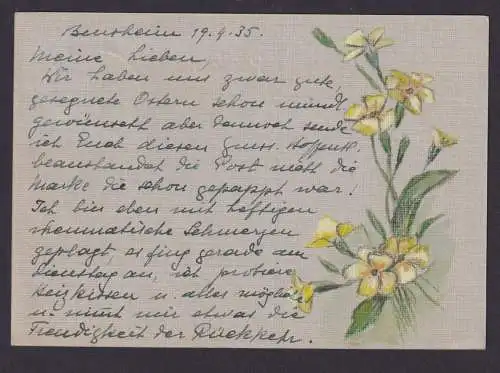 Bensheim 19.4.35.
Meine Lieben,
Wir haben uns zwar gute,
gesegnete Ostern schon mündl.
gewünscht aber dennoch sende
ich Euch diesen Gruss. Hoffentl.
beanstandet die Post nicht die
Marke die schon gepappt war!
Ich bin eben mit heftigen
rheumatische Schmerzen
geplagt, es fing gerade am
Dienstag an, ich probiere
Heizkissen u. alles mögliche
u. nimmt mir etwas die
Freudigkeit der Rückkehr.